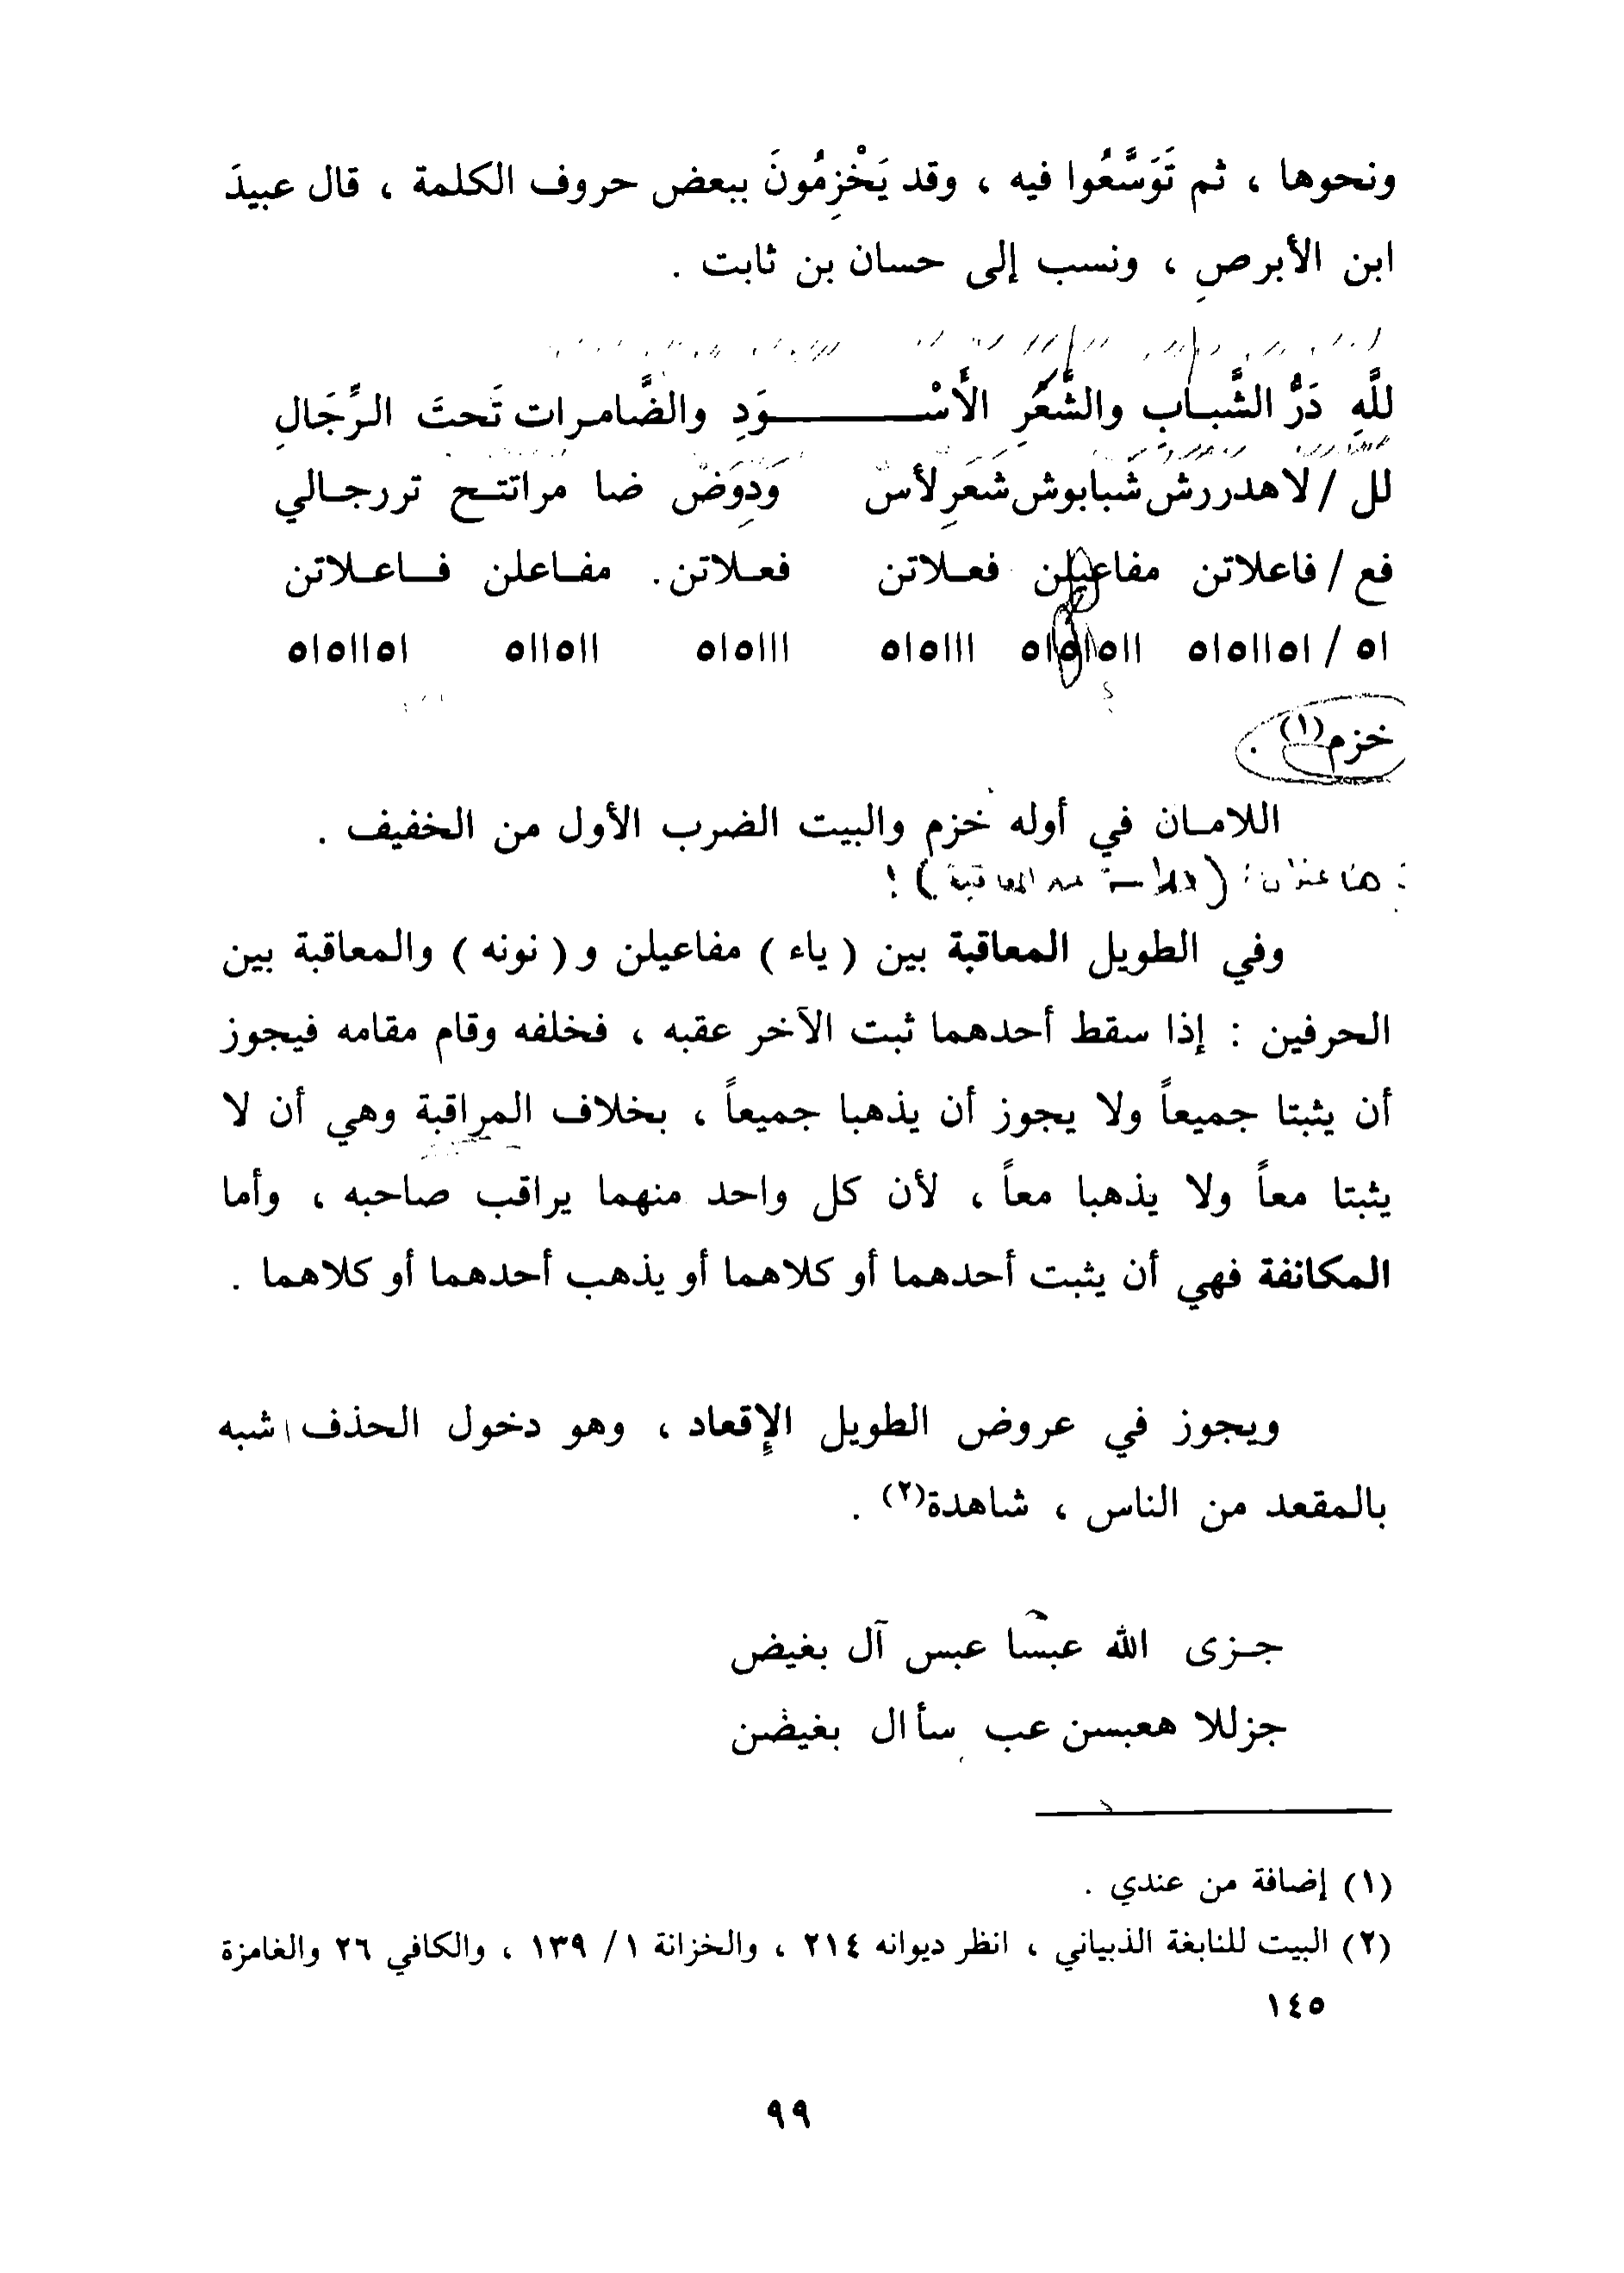 ونحوها ، ثم تَوَسَّعُوا فيه ، وقد يَخْزِمُونَ ببعض حروف الكلمة ، قال عبيدَ
ابن الأبرصِ ، ونسب إلى حسان بن ثابت .
للَّهِ دَرُّ الشَّبـابِ والشَّعَرِ الأَسْـــــــوَدِ والضَّامـرات تَحتَ الـرِّجَالِ
لل / لاهدررش شبابوش شعَرِلأس وَدِوَض ضا مراتتـح تررجـالي
فع / فاعلاتن مفاعيلن فعـلاتن فعـلاتن . مفـاعلن فـاعـلاتن
ا٥ / ا٥اا٥ا٥ اا٥ا٥ا٥ ااا٥ا٥ ااا٥ا٥ اا٥اا٥ ا٥اا٥ا٥
خزم(١) .
اللامـان في أوله خزم والبيت الضرب الأول من الخفيف .
هنا عنوان :
وفي الطويل المعاقبة بين ( ياء ) مفاعيلن و ( نونه ) والمعاقبة بين
الحرفين : إذا سقط أحدهما ثبت الآخر عقبه ، فخلفه وقام مقامه فيجوز
أن يثبتا جميعاً ولا يجوز أن يذهبا جميعاً ، بخلاف المراقبة وهي أن لا
يثبتا معاً ولا يذهبا معاً ، لأن كل واحد منهما يراقب صاحبه ، وأما
المكانفة فهي أن يثبت أحدهما أو كلاهما أو يذهب أحدهما أو كلاهما .
ويجوز في عروض الطويل الإقعاد ، وهو دخول الحذف شبه
بالمقعد من الناس ، شاهدة(٢) .
جـزى الله عبسا عبس آل بغيض
جزللا هعبسن عب سأ ال بغيضن
(١) إضافة من عندي .
(٢) البيت للنابغة الذبياني ، انظر ديوانه ٢١٤ ، والخزانة ١ / ١٣٩ ، والكافي ٢٦ والغامزة
١٤٥
٩٩